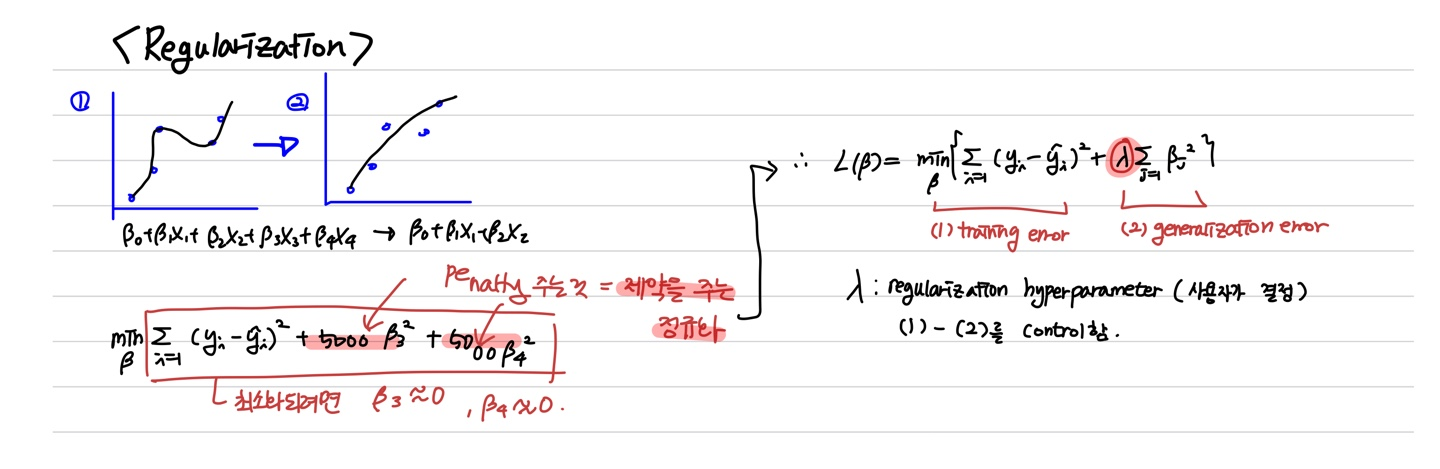 <Regularization>
① ②
β₀+β₁X₁+ β₂X₂+β₃X₃+β₄X₄ → β₀+β₁X₁+β₂X₂
Penalty 주는 것 = 제약을 주는
정규화
min β Σ i=1 (yᵢ-ŷᵢ)² + 5000 β₃² + 5000 β₄²
최소화되려면 β₃≈0 , β₄≈0.
∴ L(β)= min β { Σ i=1 (yᵢ-ŷᵢ)² + λ Σ j=1 βⱼ² }
(1) training error (2) generalization error
λ : regularization hyperparameter (사용자가 결정)
(1) - (2)를 control함.